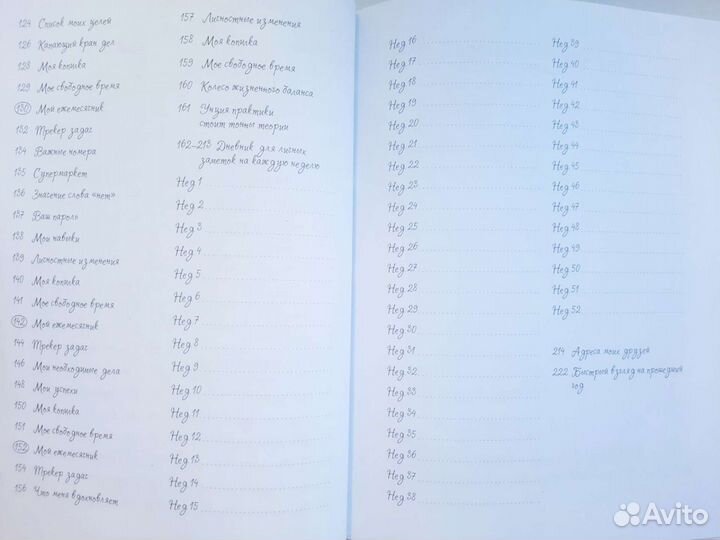 124 Список моих целей
126 Капающий кран дел
128 Моя копилка
129 Мое свободное время
130 Мой ежемесячник
132 Трекер задач
134 Важные номера
135 Супермаркет
136 Значение слова «нет»
137 Ваш пароль
138 Мои навыки
139 Личностные изменения
140 Моя копилка
141 Мое свободное время
142 Мой ежемесячник
144 Трекер задач
146 Мои необходимые дела
148 Мои успехи
150 Моя копилка
151 Мое свободное время
152 Мой ежемесячник
154 Трекер задач
156 Что меня вдохновляет
157 Личностные изменения
158 Моя копилка
159 Мое свободное время
160 Колесо жизненного баланса
161 Унция практики
стоит тонны теории
162–213 Дневник для личных
заметок на каждую неделю
Нед 1
Нед 2
Нед 3
Нед 4
Нед 5
Нед 6
Нед 7
Нед 8
Нед 9
Нед 10
Нед 11
Нед 12
Нед 13
Нед 14
Нед 15
Нед 16
Нед 17
Нед 18
Нед 19
Нед 20
Нед 21
Нед 22
Нед 23
Нед 24
Нед 25
Нед 26
Нед 27
Нед 28
Нед 29
Нед 30
Нед 31
Нед 32
Нед 33
Нед 34
Нед 35
Нед 36
Нед 37
Нед 38
Нед 39
Нед 40
Нед 41
Нед 42
Нед 43
Нед 44
Нед 45
Нед 46
Нед 47
Нед 48
Нед 49
Нед 50
Нед 51
Нед 52
214 Адреса моих друзей
222 Быстрый взгляд на прошедший
год
Avito